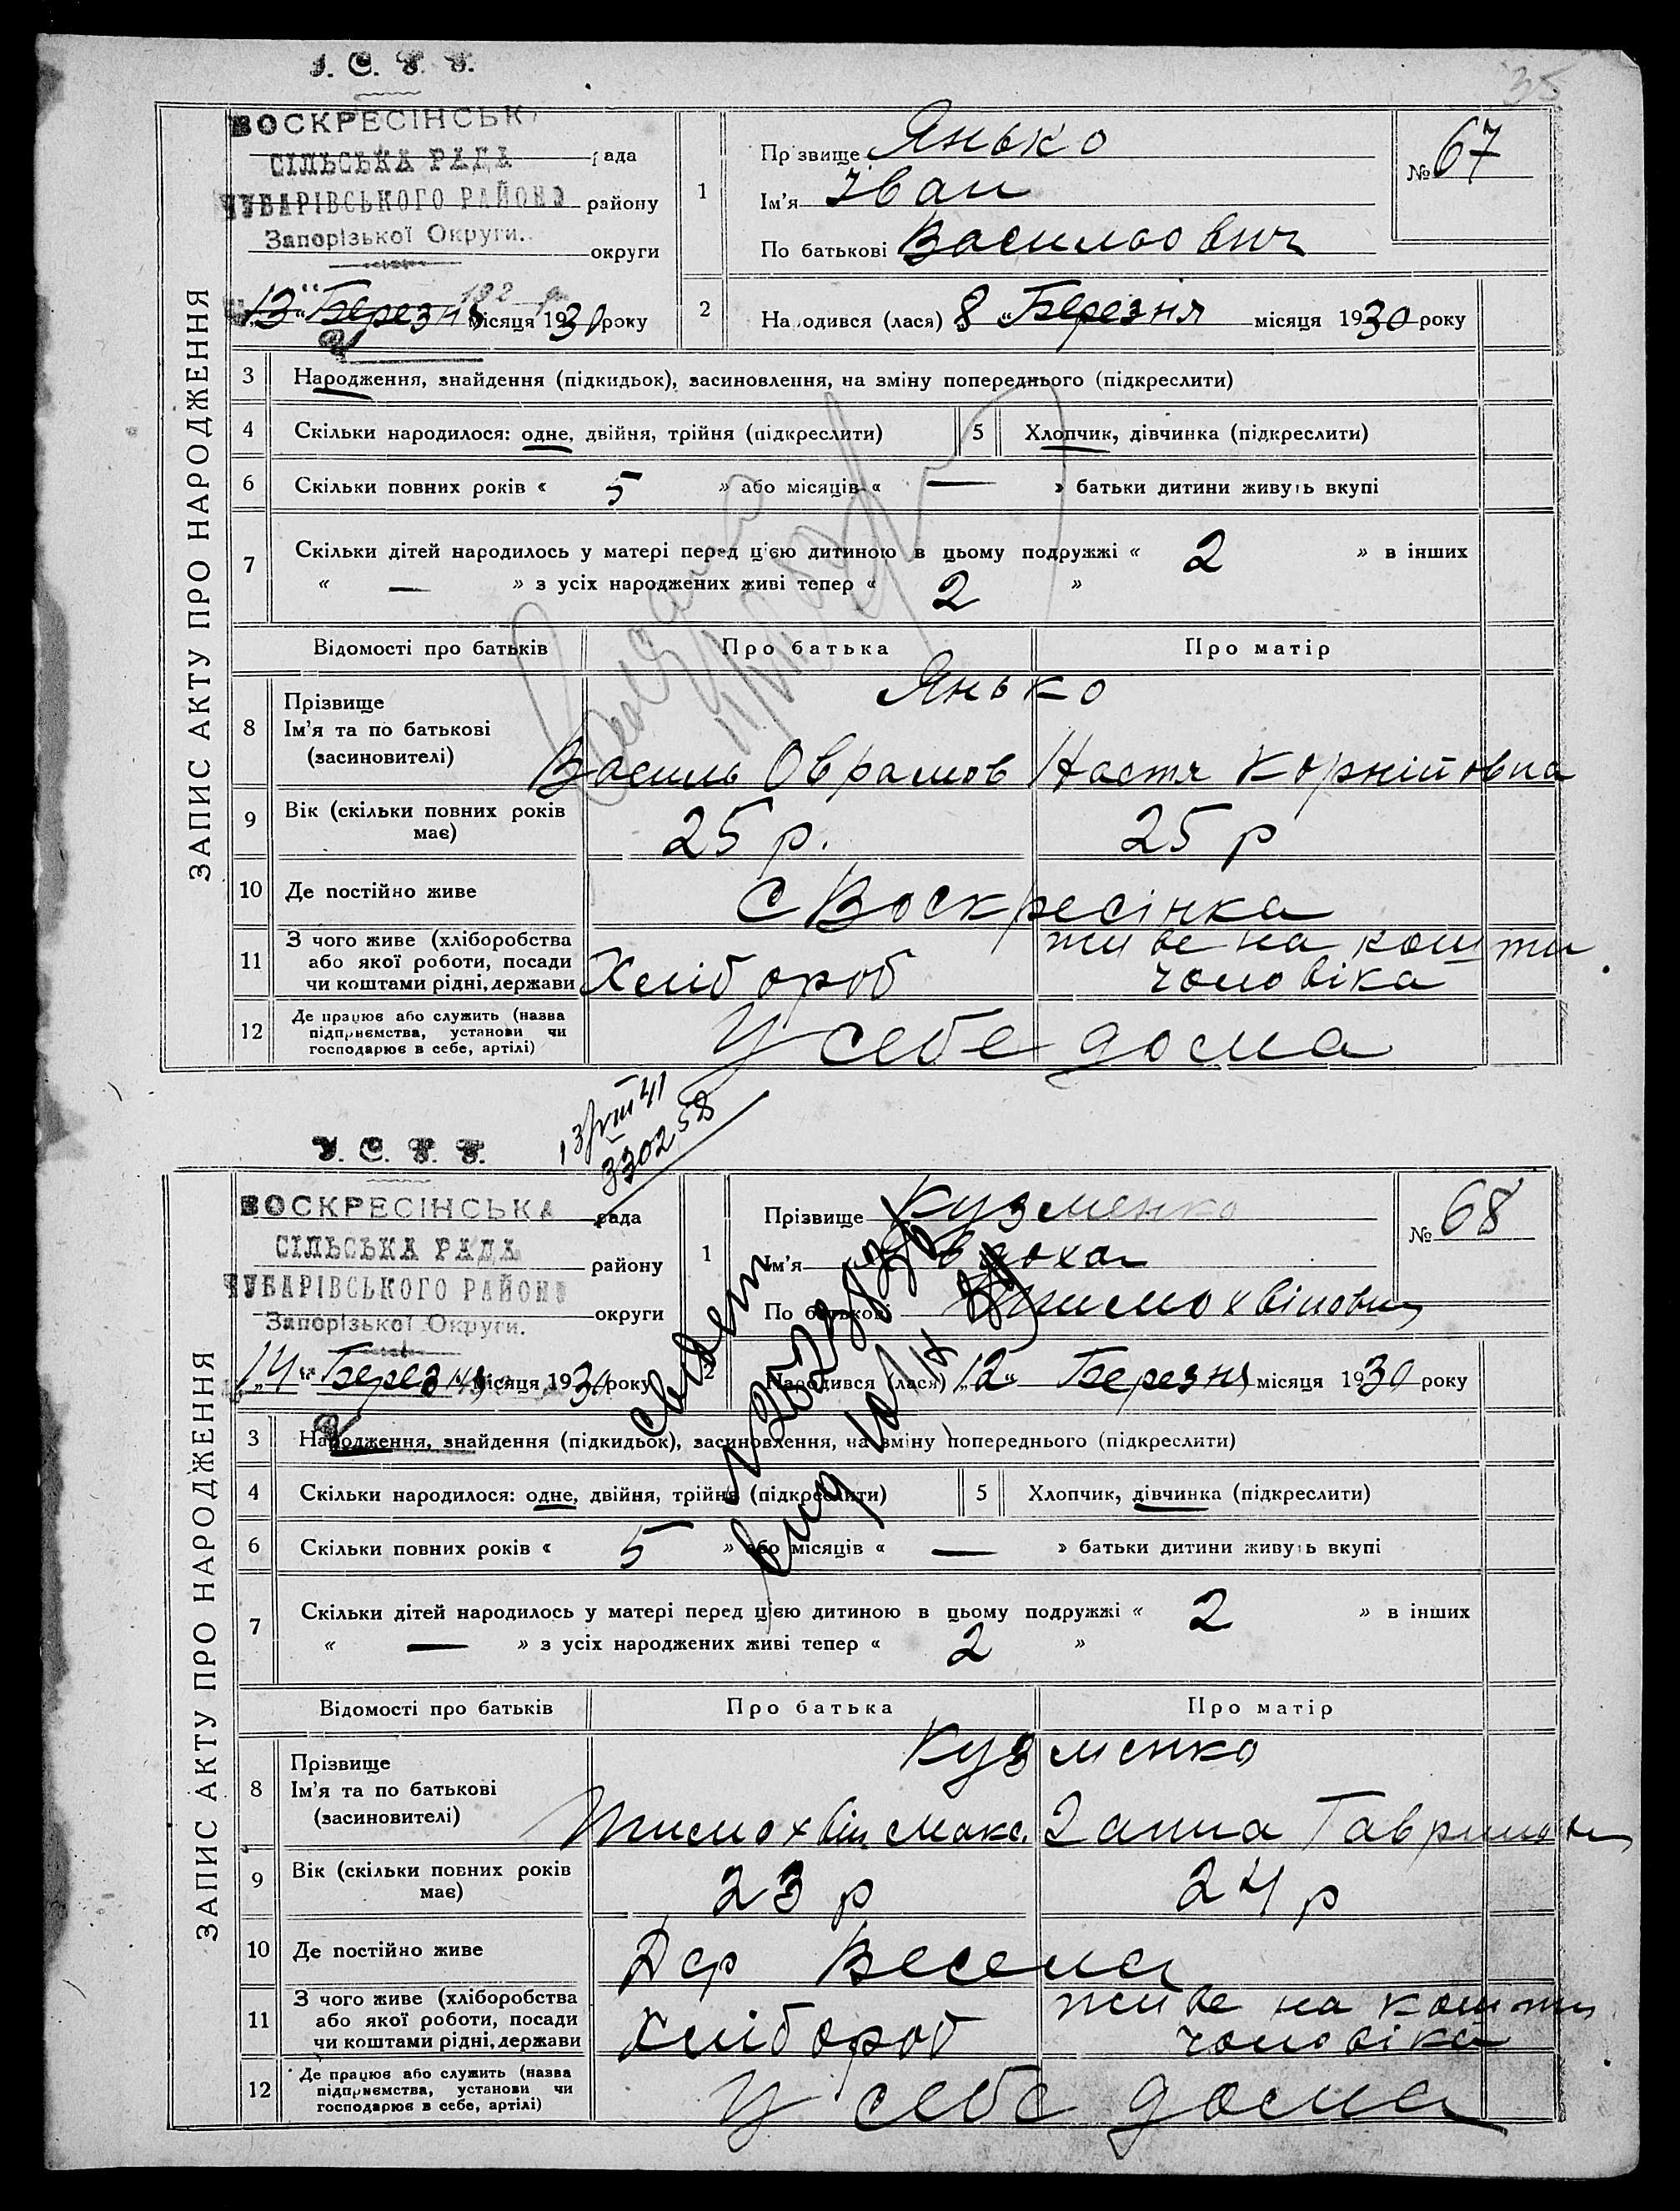 У. С. Р. Р.
35
ВОСКРЕСІНСЬК
рада
СІЛЬСЬКА РАДА
ЧУБАРІВСЬКОГО РАЙОНУ району
Запорізької Округи. округи
„13“ Березня місяця 1930 року
1
Прізвище Янько
Ім'я Іван
По батькові Васильович
№ 67
2
Народився (лася) „8“ Березня місяця 1930 року
ЗАПИС АКТУ ПРО НАРОДЖЕННЯ
3 Народження, знайдення (підкидьок), засиновлення, на зміну попереднього (підкреслити)
4 Скільки народилося: одне, двійня, трійня (підкреслити) 5 Хлопчик, дівчинка (підкреслити)
6 Скільки повних років « 5 » або місяців « — » батьки дитини живуть вкупі
7 Скільки дітей народилось у матері перед цією дитиною в цьому подружжі « 2 » в інших
« — » з усіх народжених живі тепер « 2 »
Відомості про батьків Про батька Про матір
8 Прізвище Янько
Ім'я та по батькові
(засиновителі) Василь Оврамов Настя Корнійовна
9 Вік (скільки повних років має) 25 р. 25 р
10 Де постійно живе С Воскресінка
11 З чого живе (хліборобства
або якої роботи, посади
чи коштами рідні, держави Хлібороб живе на кошти
чоловіка
12 Де працює або служить (назва
підприємства, установи чи
господарює в себе, артілі) У себе дома
13/VIII 41
330258
У. С. Р. Р.
ВОСКРЕСІНСЬКА рада
СІЛЬСЬКА РАДА району
ЧУБАРІВСЬКОГО РАЙОНУ
Запорізької Округи. округи
„14“ Березня місяця 1930 року
1
Прізвище Кузменко
Ім'я
По батькові Тимохвіповна
№ 68
2
Народився (лася) „12“ Березня місяця 1930 року
ЗАПИС АКТУ ПРО НАРОДЖЕННЯ
3 Народження, знайдення (підкидьок), засиновлення, на зміну попереднього (підкреслити)
4 Скільки народилося: одне, двійня, трійня (підкреслити) 5 Хлопчик, дівчинка (підкреслити)
6 Скільки повних років « 5 » або місяців « — » батьки дитини живуть вкупі
7 Скільки дітей народилось у матері перед цією дитиною в цьому подружжі « 2 » в інших
« — » з усіх народжених живі тепер « 2 »
Відомості про батьків Про батька Про матір
8 Прізвище Кузменко
Ім'я та по батькові
(засиновителі) Тимохвій Макс. Ганна Гаврилов
9 Вік (скільки повних років має) 23 р 24 р
10 Де постійно живе Дер Весела
11 З чого живе (хліборобства
або якої роботи, посади
чи коштами рідні, держави Хлібороб живе на кошти
чоловіка
12 Де працює або служить (назва
підприємства, установи чи
господарює в себе, артілі) У себе дома